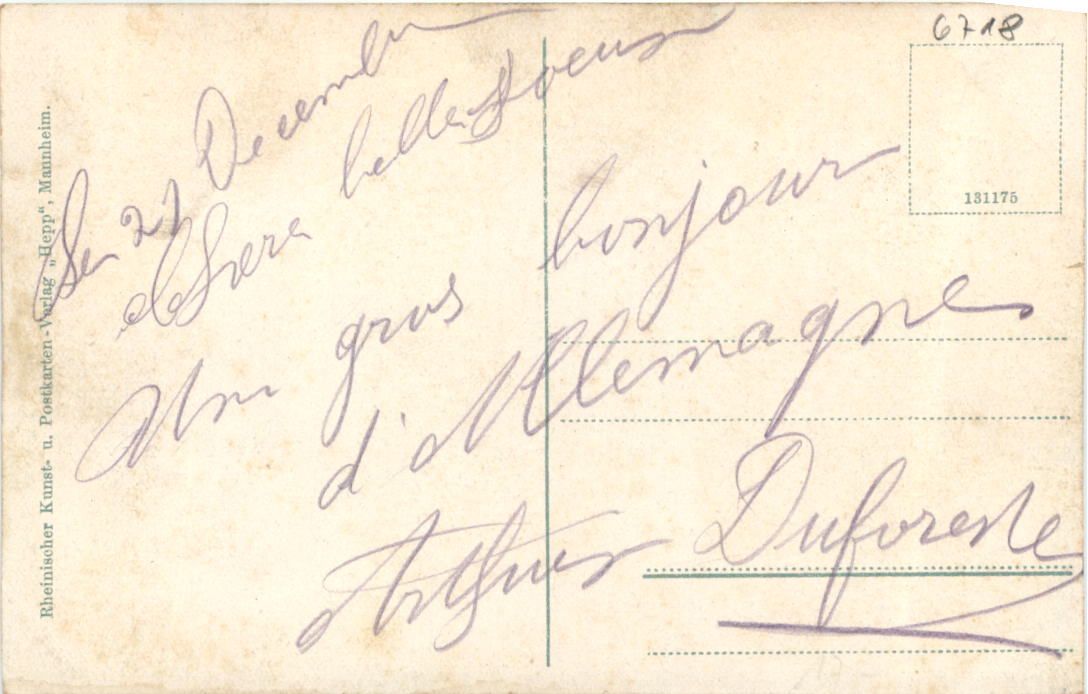 6718
131175
Rheinischer Kunst- u. Postkarten-Verlag „Hepp“, Mannheim.
27 Decembre
belle Soeur
Un gros bonjour
d'Allemagne
Arthur Duforeste